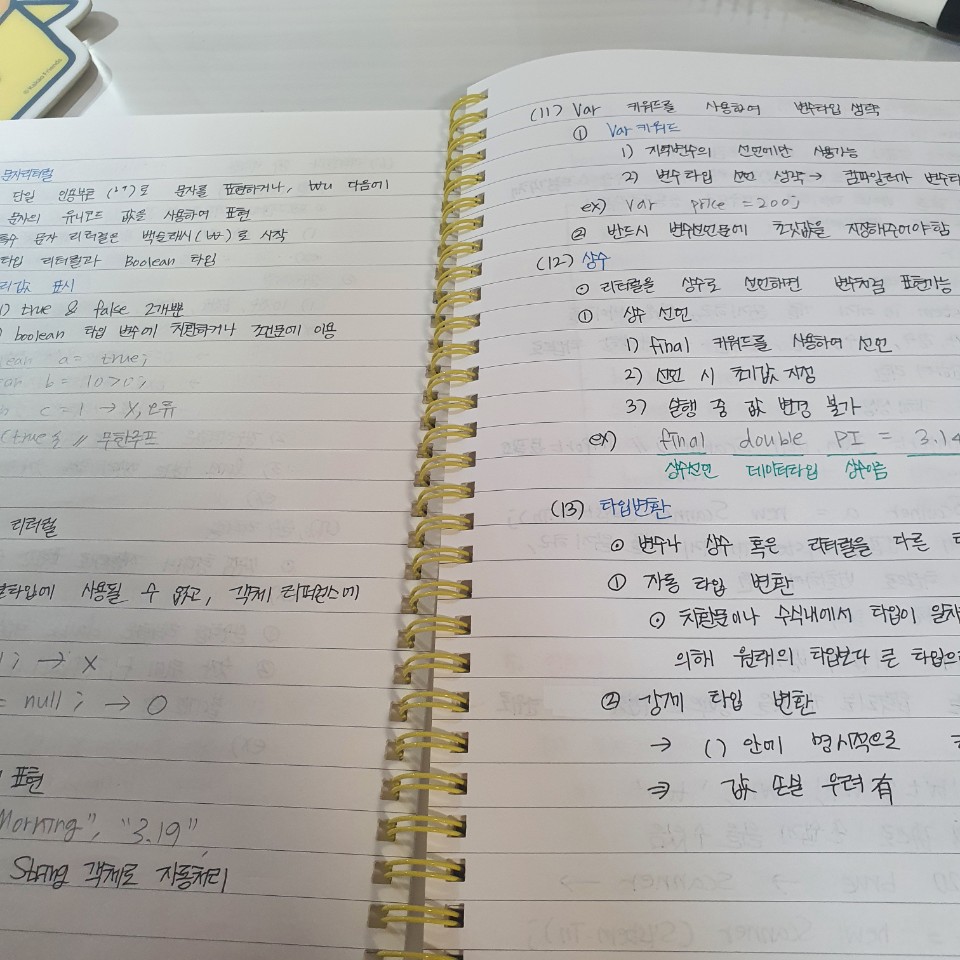 문자리터럴
단일 인용부호 (' ')로 문자를 표현하거나, ₩u 다음에
문자의 유니코드 값을 사용하여 표현
특수 문자 리터럴은 백슬래시(₩)로 시작
타입 리터럴과 Boolean 타입
리값 표시
1) true & false 2개뿐
) boolean 타입 변수에 치환하거나 조건문에 이용
ean a = true;
an b = 10>0;
c = 1 → X, 오류
(true) // 무한루프
리터럴
본타입에 사용될 수 없고, 객체 리퍼런스에
l; → X
= null; → O
표현
Morning", "3.19"
String 객체로 자동처리
(11) Var 키워드를 사용하여 변수타입 생략
① Var 키워드
1) 지역변수의 선언에만 사용가능
2) 변수 타입 선언 생략 → 컴파일러가 변수타
ex) Var price = 200;
② 반드시 변수선언문에 초깃값을 지정해주어야함
(12) 상수
⊙ 리터럴을 상수로 선언하면 변수처럼 표현가능
① 상수 선언
1) final 키워드를 사용하여 선언
2) 선언 시 초기값 지정
3) 실행 중 값 변경 불가
ex) final double PI = 3.14
상수선언 데이터타입 상수이름
(13) 타입변환
⊙ 변수나 상수 혹은 리터럴을 다른 타
① 자동 타입 변환
⊙ 치환문이나 수식내에서 타입이 일치
의해 원래의 타입보다 큰 타입으
② 강제 타입 변환
→ () 안에 명시적으로
⇒ 값 손실 우려 有